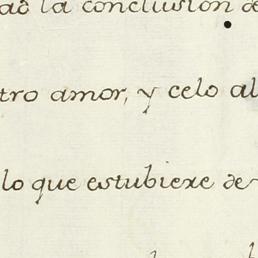 la conclusion de
tro amor, y celo al
lo que estubiere de